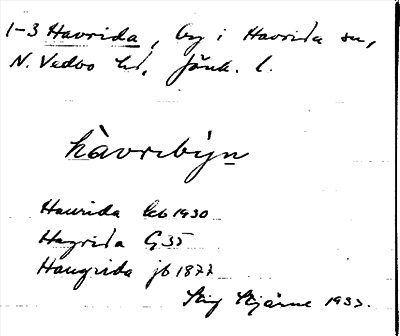 1-3 Havrida, by i Havrida sn,
N. Vedbo hd, Jönk. l.
hàvrɩbýn
Haurida kb 1930
Hagrida G 35
Haugrida jb 1877
Stig Stjärne 1937.